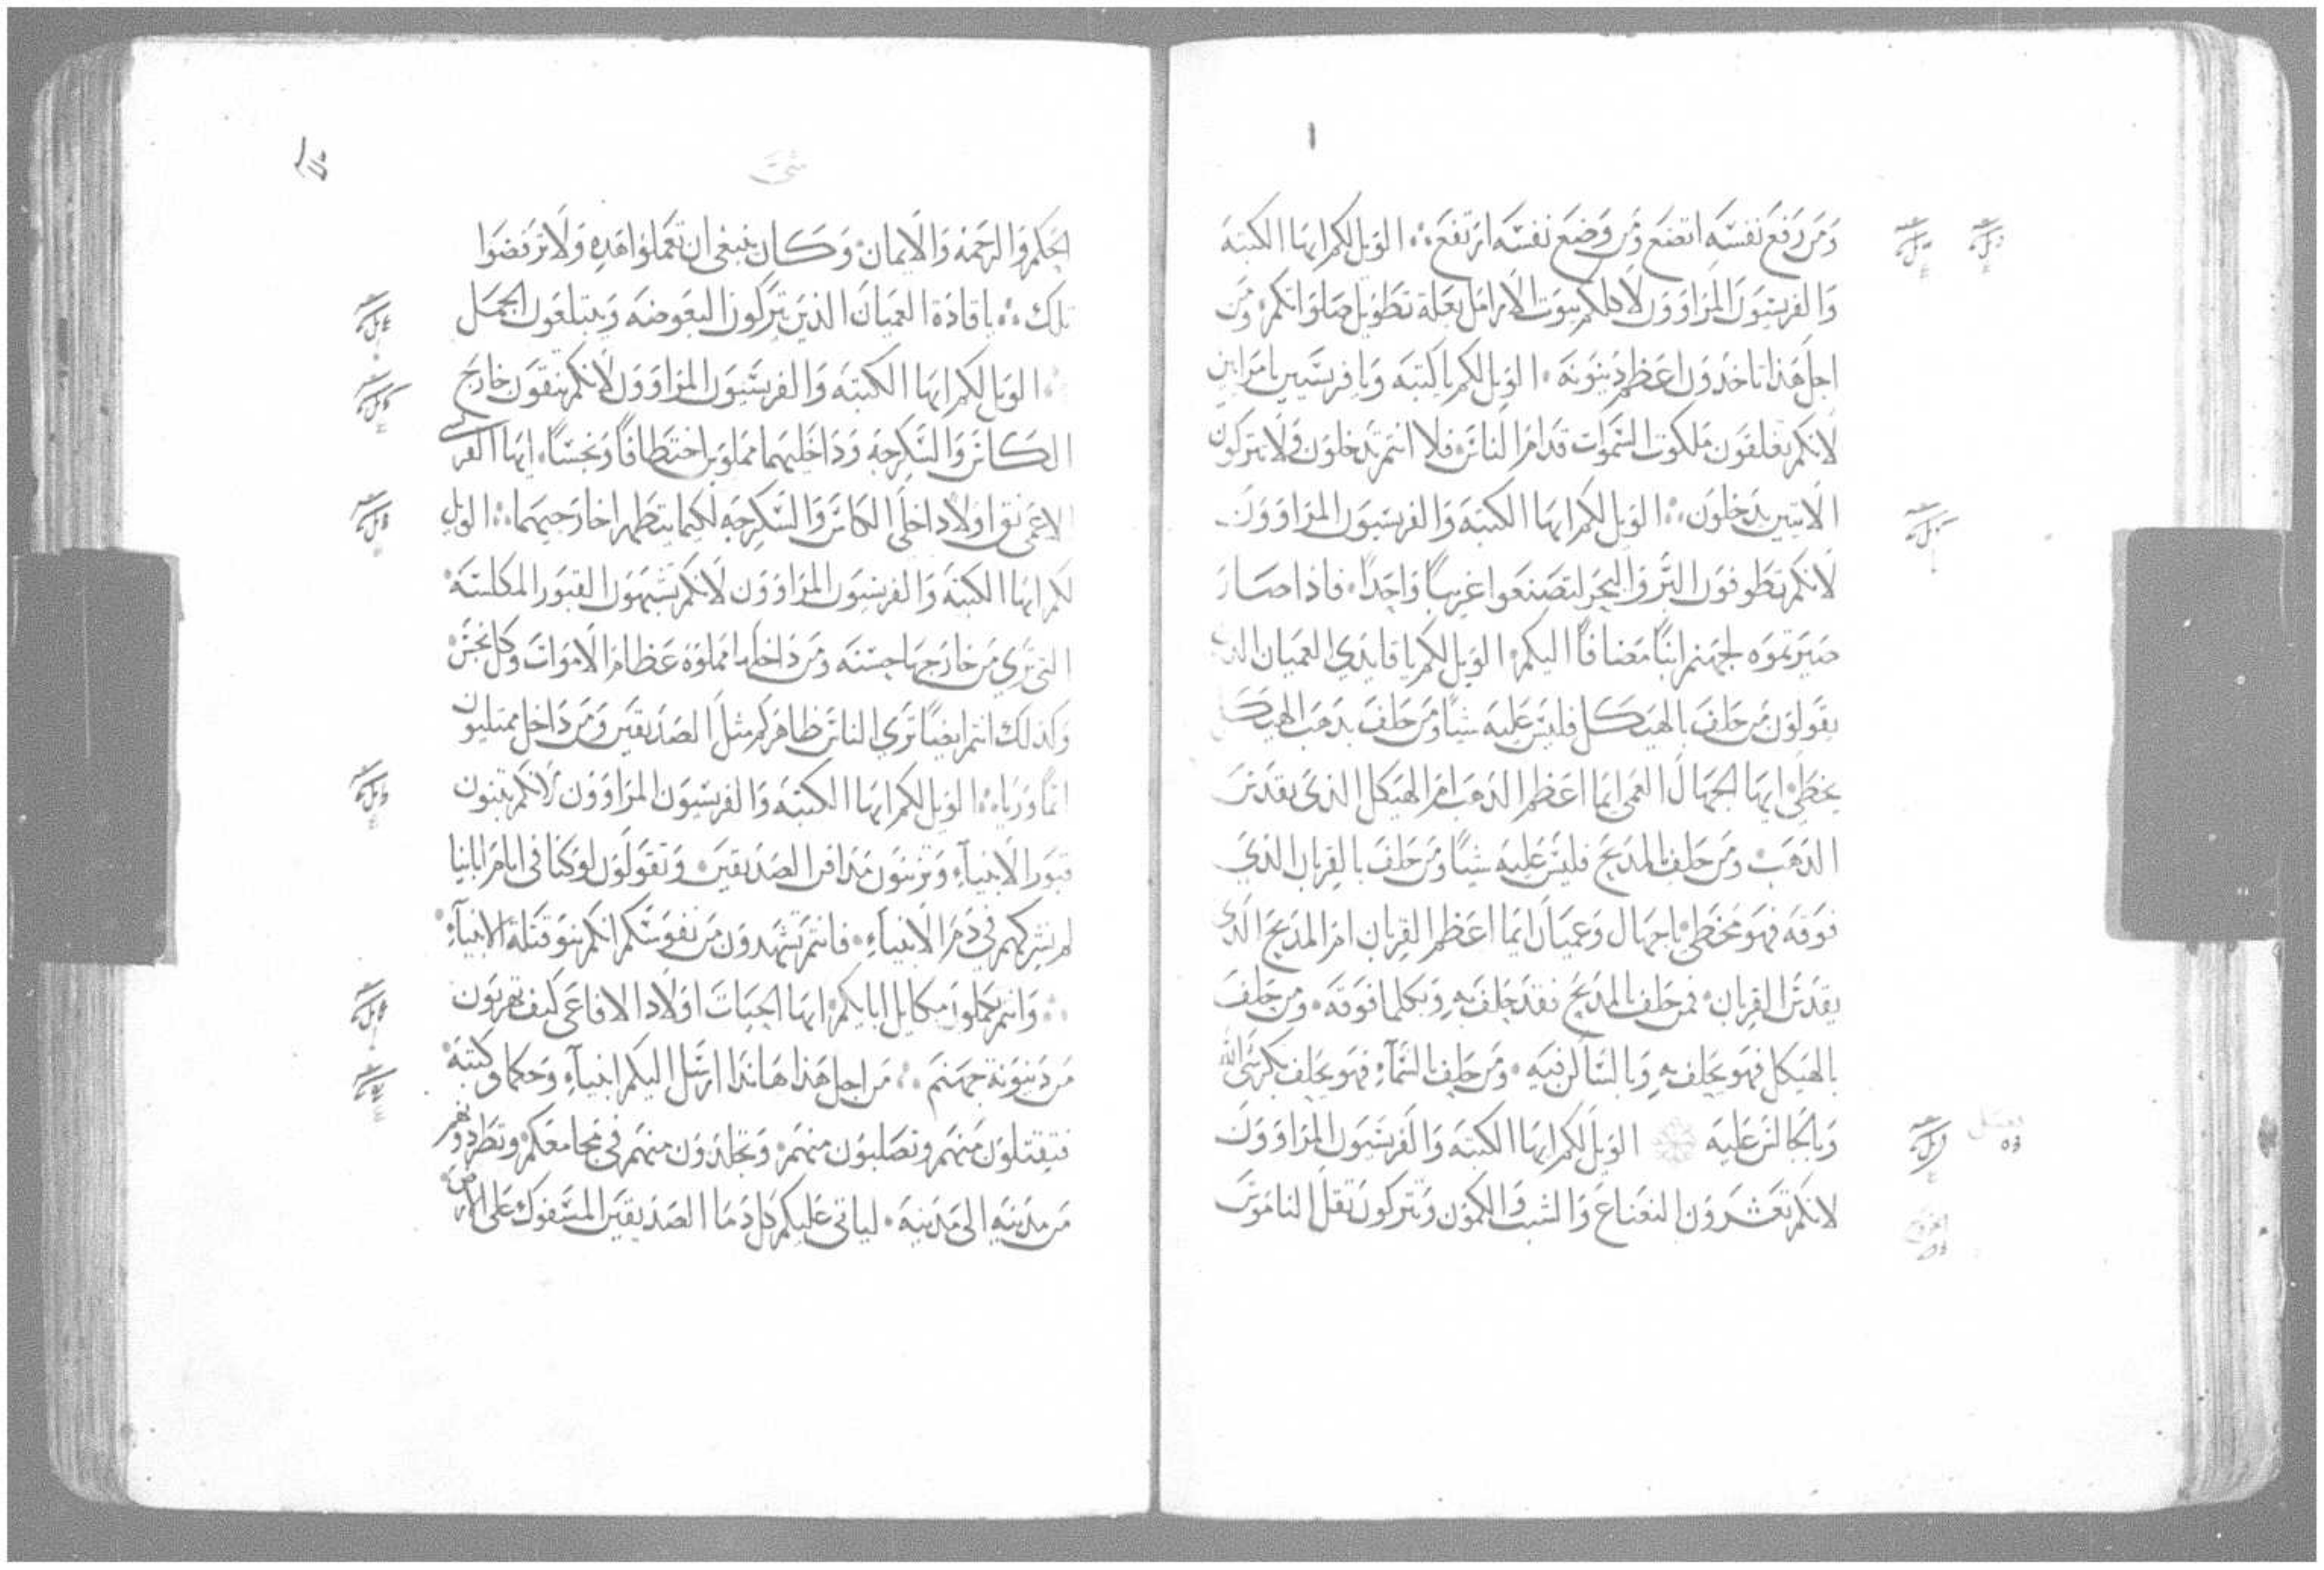 ومن رفع نفسه اتضع ومن وضع نفسه ارتفع ؞ الويل لكم ايها الكتبة
والفريسيون المراوون لاكلكم بيوت الارامل بعلة تطويل صلواتكم ومن
اجل هذا تاخذون اعظم دينونة ۰ الويل لكم ياكتبة ويافريسيين يامرايين
لانكم تغلقون ملكوت السموات قدام الناس فلا انتم تدخلون ولا تتركون
الاتيين يدخلون ؞ الويل لكم ايها الكتبة والفريسيون المراوون
لانكم تطوفون البر والبحر لتصنعوا غريبا واحدا ۰ فاذا صار
صيرتموه لجهنم ابنا مضافا اليكم ۰ الويل لكم ياقايدي العميان الذين
يقولون من حلف بالهيكل فليس عليه شيا ومن حلف بذهب الهيكل
يخطي ۰ ايها الجهال العمي ايما اعظم الذهب ام الهيكل الذي يقدس
الذهب ۰ ومن حلف بالمذبح فليس عليه شيا ومن حلف بالقربان الذي
فوقه فهو مخطي ۰ ياجهال وعميان ايما اعظم القربان ام المذبح الذي
يقدس القربان ۰ فمن حلف بالمذبح فقد حلف به وبكلما فوقه ۰ ومن حلف
بالهيكل فهو يحلف به وبالساكن فيه ۰ ومن حلف بالسماء فهو يحلف بكرسي الله
وبالجالس عليه الويل لكم ايها الكتبة والفريسيون المراوون
لانكم تعشرون النعناع والشبث والكمون وتتركون ثقل الناموس
الحكم والرحمة والايمان ۰ وكان ينبغي ان تعملوا هذه ولا ترفضوا
تلك ؞ ياقادة العميان الذين يتركون البعوضة ويبتلعون الجمل
؞ الويل لكم ايها الكتبة والفريسيون المراوون لانكم تنقون خارج
الكاس والسكرجة وداخليهما مملوين اختطافا ونجسا ۰ ايها الفريسي
الاعمى نق اولا داخل الكاس والسكرجة لكيما يتطهر اخارجيهما ؞ الويل
لكم ايها الكتبة والفريسيون المراوون لانكم تشبهون القبور المكلسة ۰
التي تري من خارجها حسنة ومن داخلها مملوة عظام الاموات وكل نجس ۰
وكذلك انتم ايضا تري الناس ظاهركم مثل الصديقين ومن داخل ممتليون
اثما ورياء ؞ الويل لكم ايها الكتبة والفريسيون المراوون لانكم تبنون
قبور الانبياء وتزينون مدافن الصديقين ۰ وتقولون لو كنا في ايام اباينا
لم نشركهم في دم الانبياء ۰ فانتم تشهدون من نفوسكم انكم بنو قتلة الانبياء ۰
؞ وانتم تكملون مكاييل ابايكم ۰ ايها الحيات اولاد الافاعي كيف تهربون
من دينونة جهنم ؞ من اجل هذا هانذا ارسل اليكم انبياء وحكما وكتبة ۰
فتقتلون منهم وتصلبون منهم ۰ وتجلدون منهم في مجامعكم ۰ وتطردونهم
من مدينة الى مدينة ۰ لياتي عليكم كل دما الصديقين المسفوك على الارض ۰